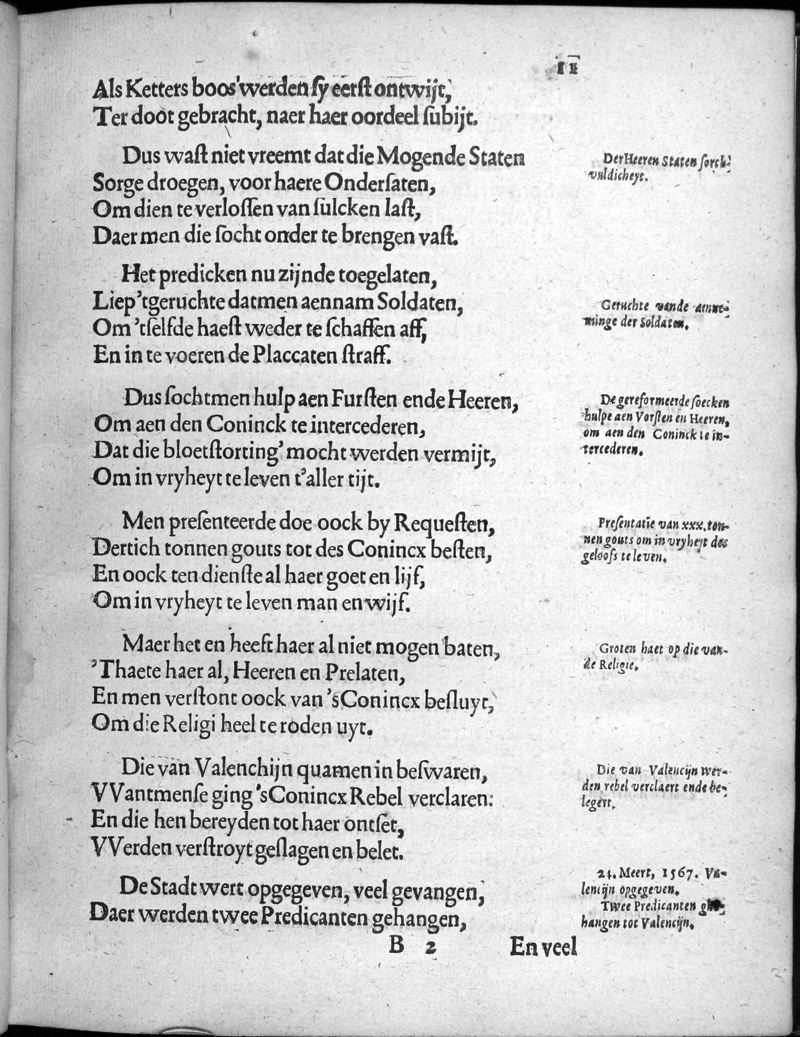 11
Als Ketters boos werden sy eerst ontwijt,
Ter doot gebracht, naer haer oordeel subijt.
Dus wast niet vreemt dat die Mogende Staten
Sorge droegen, voor haere Ondersaten,
Om dien te verlossen van sulcken last,
Daer men die socht onder te brengen vast.
Der Heeren Staten sorch-
vuldicheyt.
Het predicken nu zijnde toegelaten,
Liep 'tgeruchte datmen aennam Soldaten,
Om 'tselfde haest weder te schaffen aff,
En in te voeren de Placcaten straff.
Geruchte vande aenne-
minge der Soldaten.
Dus sochtmen hulp aen Fursten ende Heeren,
Om aen den Coninck te intercederen,
Dat die bloetstorting' mocht werden vermijt,
Om in vryheyt te leven t'aller tijt.
De gereformeerde soecken
hulpe aen Vorsten en Heeren,
om aen den Coninck te in-
tercederen.
Men presenteerde doe oock by Requesten,
Dertich tonnen gouts tot des Conincx besten,
En oock ten dienste al haer goet en lijf,
Om in vryheyt te leven man en wijf.
Presentatie van xxx. ton-
nen gouts om in vryheyt des
geloofs te leven.
Maer het en heeft haer al niet mogen baten,
'Thaete haer al, Heeren en Prelaten,
En men verstont oock van 'sConincx besluyt,
Om die Religi heel te roden uyt.
Groten haet op die van-
de Religie.
Die van Valenchijn quamen in beswaren,
VVantmense ging 'sConincx Rebel verclaren:
En die hen bereyden tot haer ontset,
VVerden verstroyt geslagen en belet.
Die van Valencijn wer-
den rebel verclaert ende be-
legert.
De Stadt wert opgegeven, veel gevangen,
Daer werden twee Predicanten gehangen,
24. Meert, 1567. Va-
lencijn opgegeven.
Twee Predicanten ge-
hangen tot Valencijn.
B 2 En veel